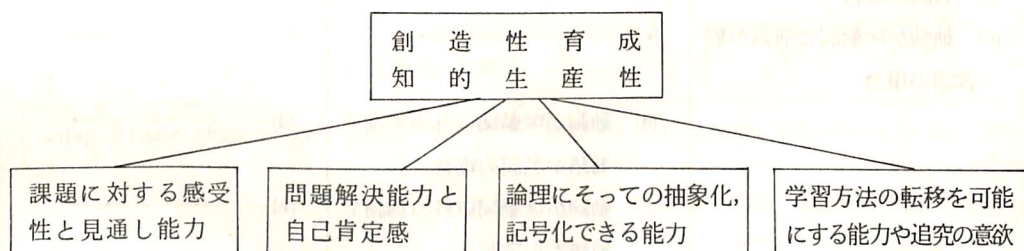 創造性育成
知的生産性
課題に対する感受
性と見通し能力
問題解決能力と
自己肯定感
論理にそっての抽象化,
記号化できる能力
学習方法の転移を可能
にする能力や追究の意欲